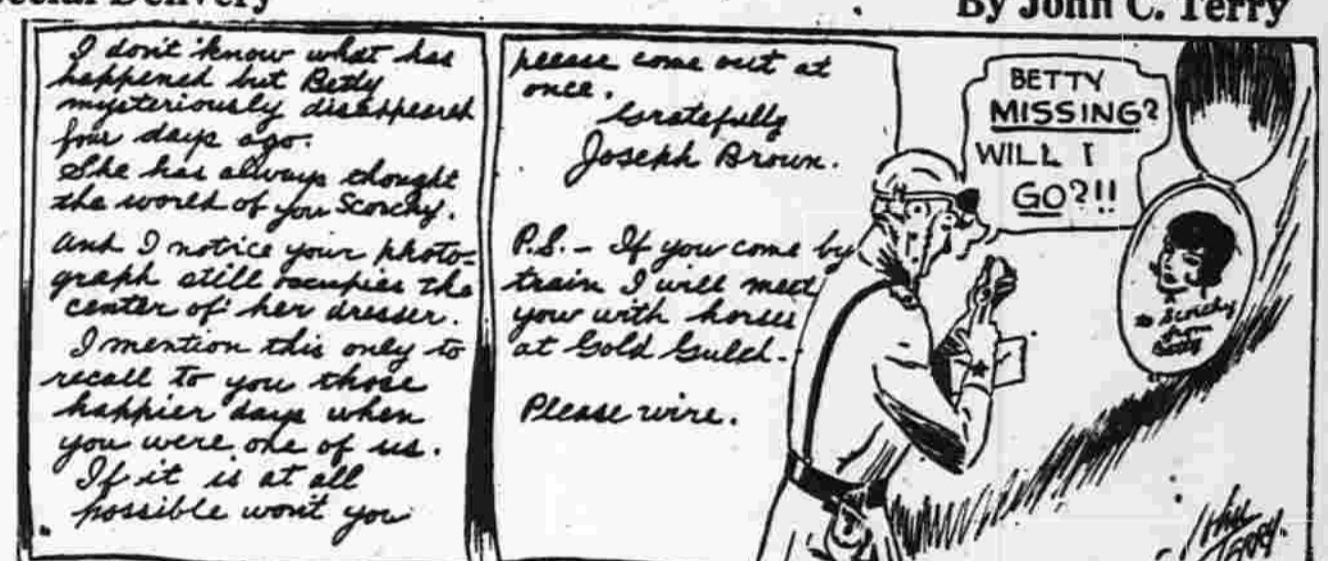 Special Delivery
By John C. Terry
I don't know what has
happened but Betty
mysteriously disappeared
four days ago.
She has always thought
the world of you Scorchy.
And I notice your photo-
graph still occupies the
center of her dresser.
I mention this only to
recall to you those
happier days when
you were one of us.
If it is at all
possible wont you
please come out at
once.
Gratefully
Joseph Brown.
P.S. - If you come by
train I will meet
you with horses
at Gold Gulch.
Please wire.
BETTY
MISSING?
WILL I
GO?!!
to Scorchy
from
Betty
John
Terry.